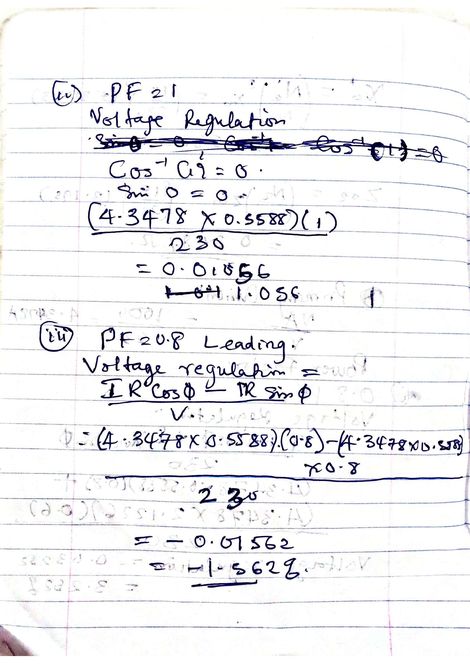 (ii) PF = 1
Voltage Regulation
Cos⁻¹ (1) = 0.
Sin 0 = 0.
(4.3478 × 0.5588)(1)
230
= 0.01056
1.056
(iii) PF = 0.8 Leading.
Voltage regulation =
IR Cosϕ — IR Sinϕ
V.
= (4.3478 × 0.5588).(0.8) — (4.3478 × 0.5588)
× 0.8
230
= - 0.01562
= - 1.562%.